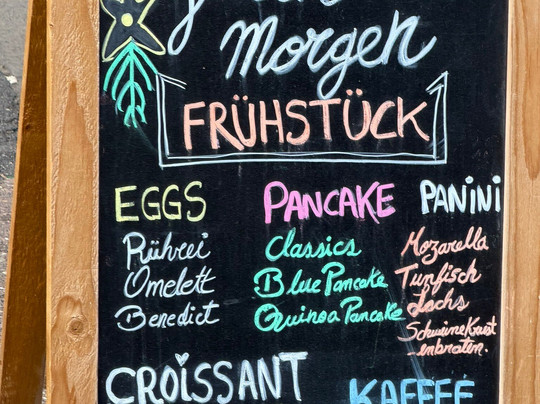 Morgen
FRÜHSTÜCK
EGGS
Rührei
Omelett
Benedict
PANCAKE
Classics
Blue Pancake
Quinoa Pancake
PANINI
Mozarella
Tunfisch
Lachs
CROISSANT
KAFFEE